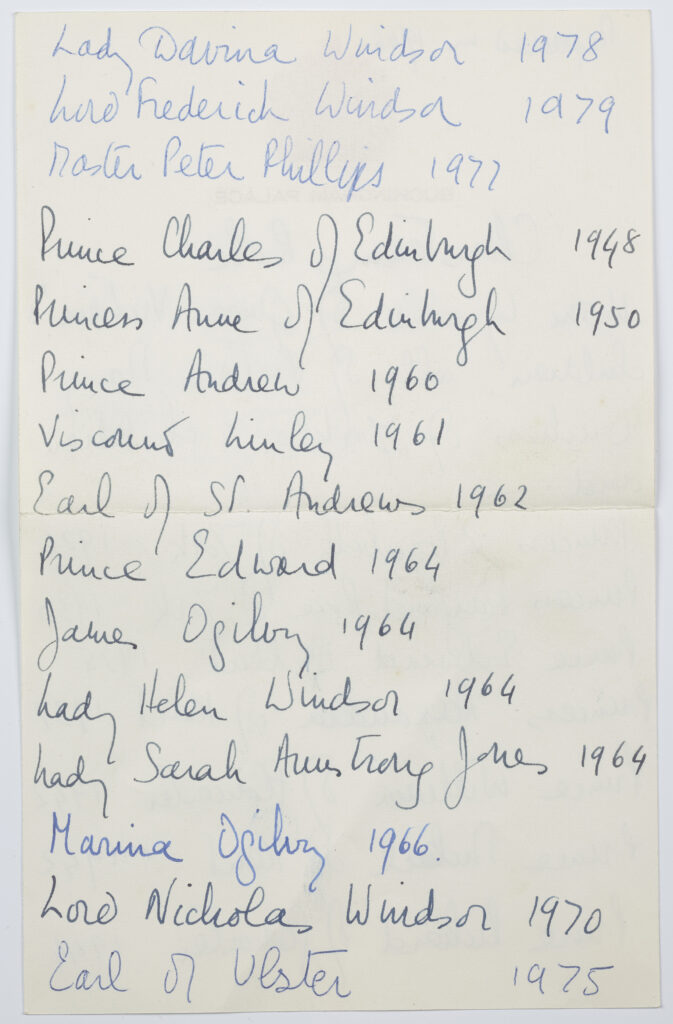 Lady Davina Windsor 1978
Lord Frederick Windsor 1979
Master Peter Phillips 1977
Prince Charles of Edinburgh 1948
Princess Anne of Edinburgh 1950
Prince Andrew 1960
Viscount Linley 1961
Earl of St. Andrews 1962
Prince Edward 1964
James Ogilvy 1964
Lady Helen Windsor 1964
Lady Sarah Armstrong Jones 1964
Marina Ogilvy 1966.
Lord Nicholas Windsor 1970
Earl of Ulster 1975